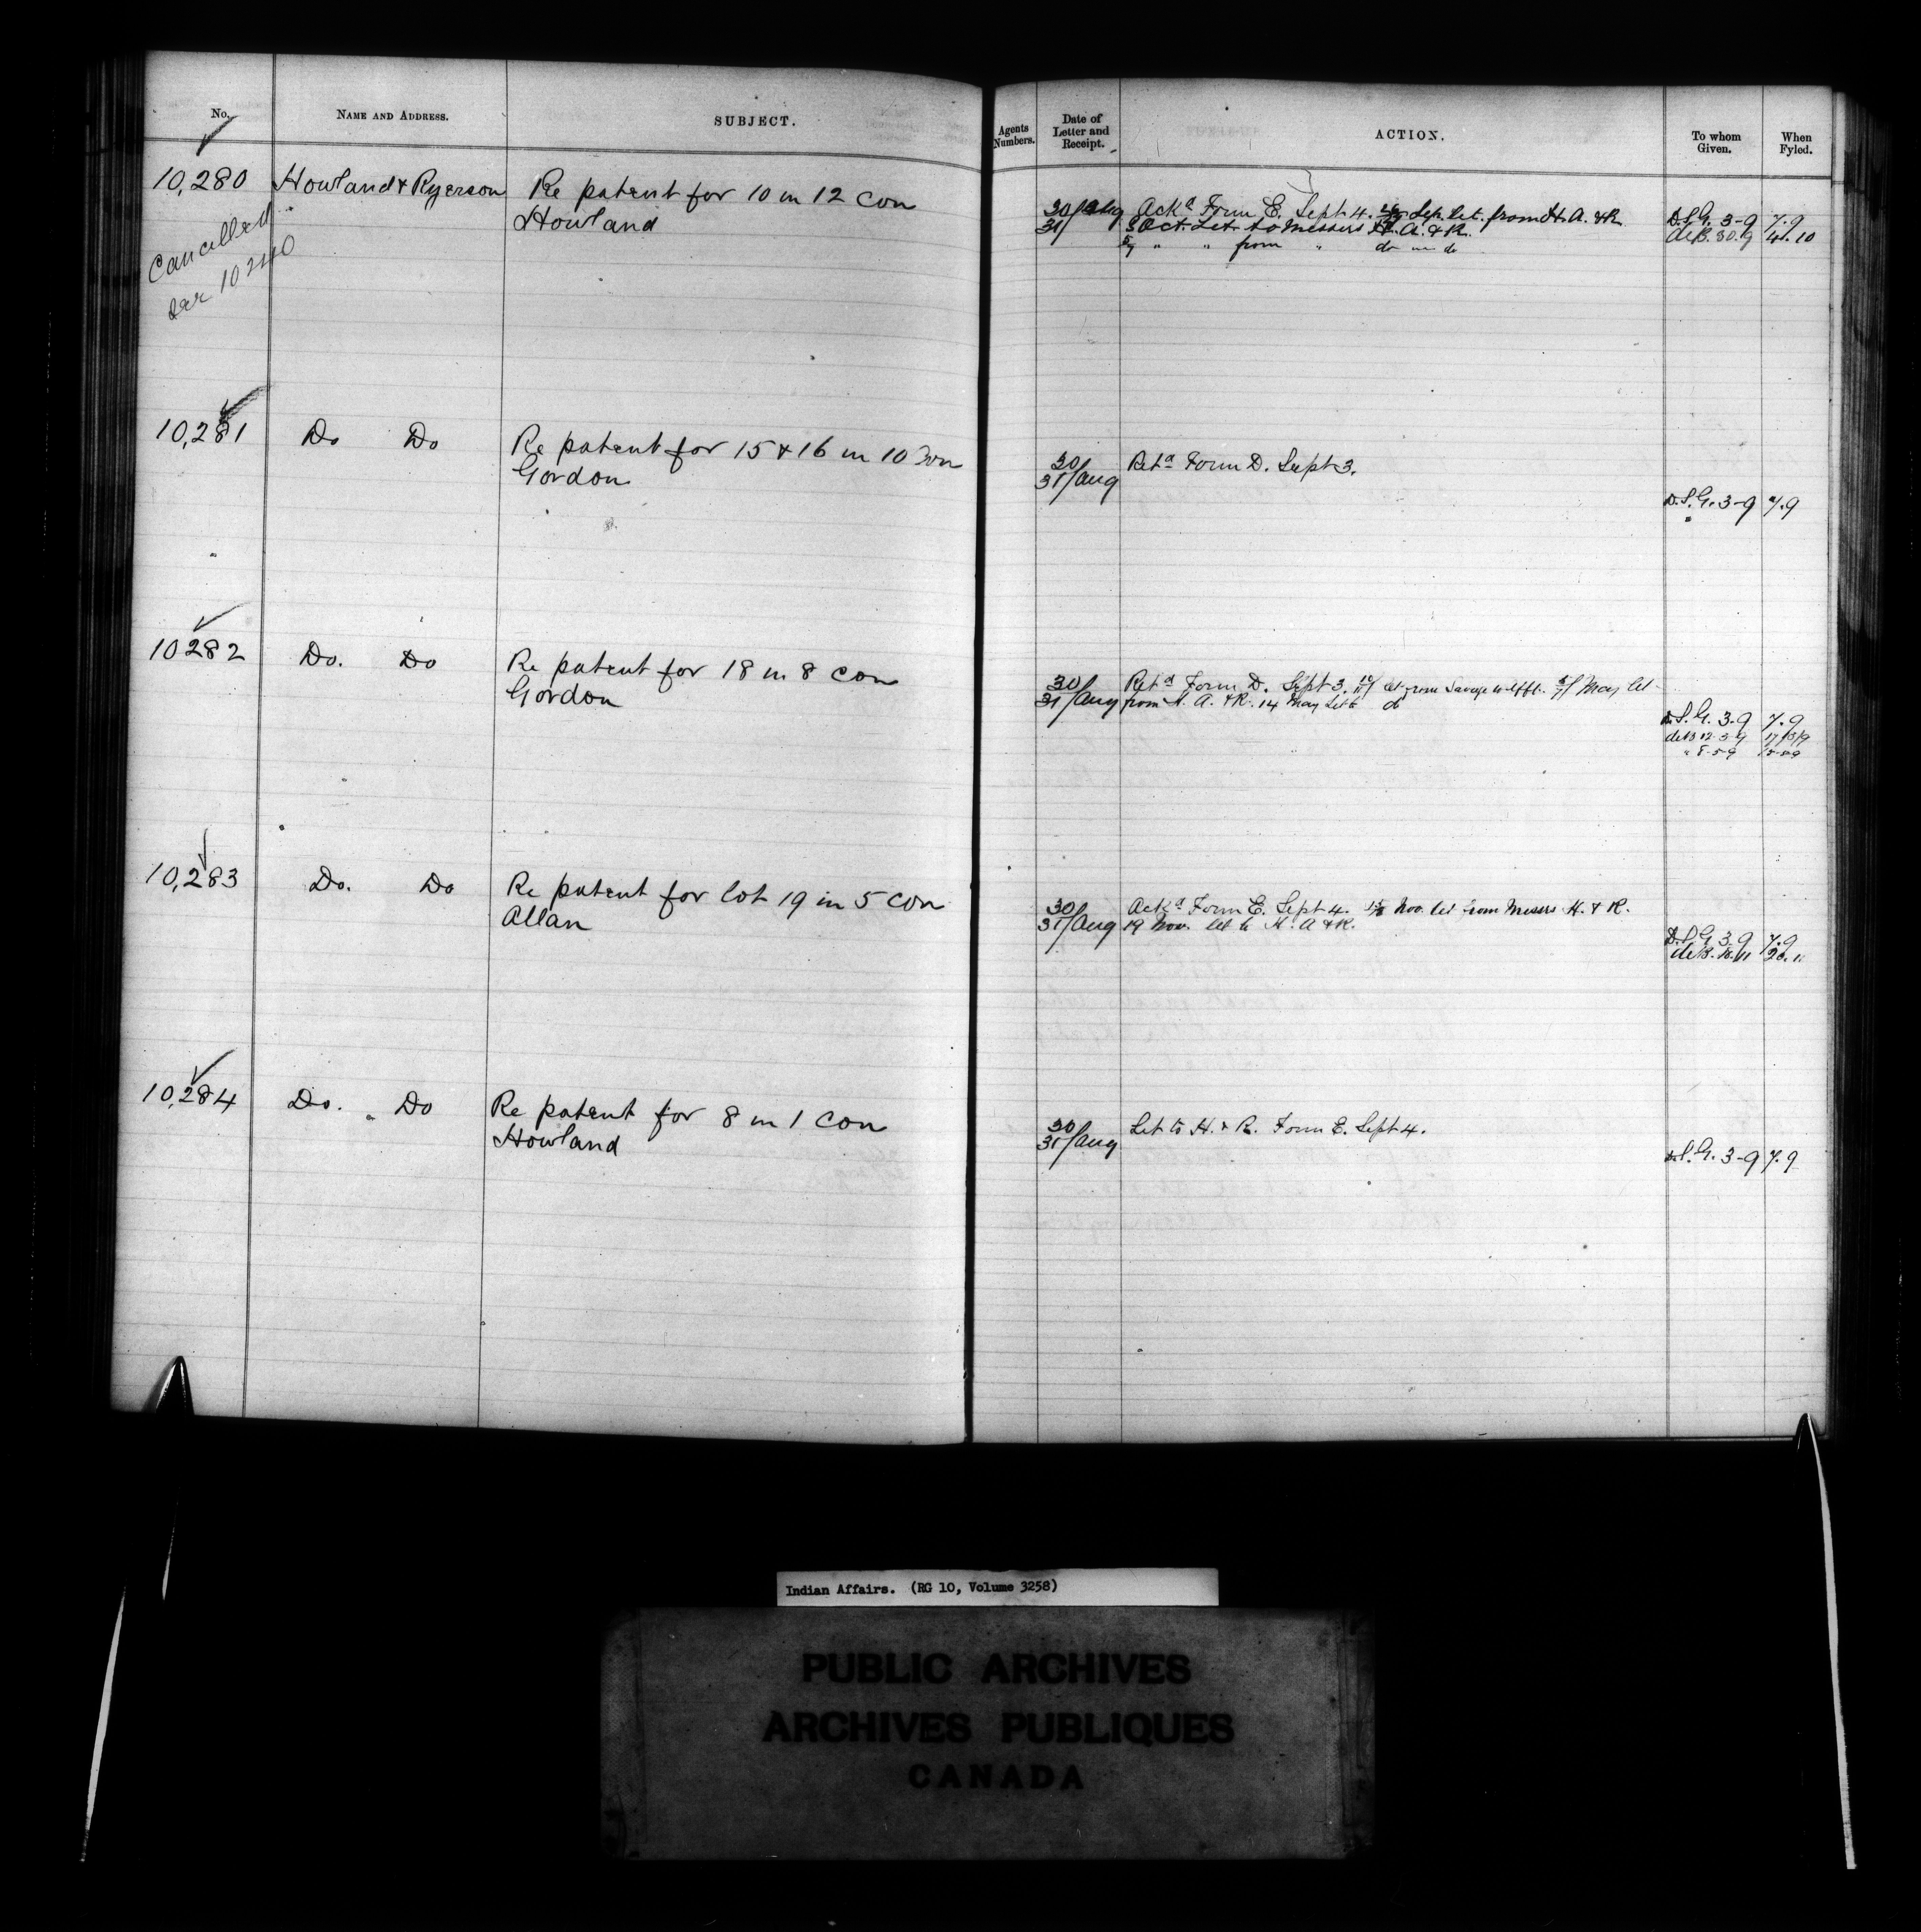 No. NAME AND ADDRESS. SUBJECT.
Agents Numbers. Date of Letter and Receipt. ACTION. To whom Given. When Fyled.
10,280 Howland & Ryerson Re patent for 10 in 12 Con
Howland
Cancelled
see 10240
30/31 Aug Ackd Form E. Sept 4. Sep. let. from H. A. & R. D.S.G. 3-9 7.9
3 Oct. Let. to Messers H. A. & R. deB. 30.9 4.10
5/7 " " from " do do
10,281 Do Do Re patent for 15 & 16 in 10 Con
Gordon
30/31 Aug Retd Form D. Sept 3.
D.S.G. 3-9 7.9
10282 Do. Do Re patent for 18 in 8 Con
Gordon
30/31 Aug Retd Form D. Sept 3. let from Savage May let
from H. A. & R. 14 May Let to do
D.S.G. 3-9 7.9
deB 12-3-9 17/3/9
" 8-5-9
10,283 Do. Do Re patent for lot 19 in 5 Con
Allan
30/31 Aug Ackd Form E. Sept 4. Nov. let from Messrs H. & R.
19 Nov. let to H. A & R.
D.S.G. 3-9 7.9
deB. 18/11 20.11
10,284 Do. Do Re patent for 8 in 1 Con
Howland
30/31 Aug Let to H. & R. Form E. Sept 4.
D.S.G. 3-9 7.9
Indian Affairs. (RG 10, Volume 3258)
PUBLIC ARCHIVES
ARCHIVES PUBLIQUES
CANADA